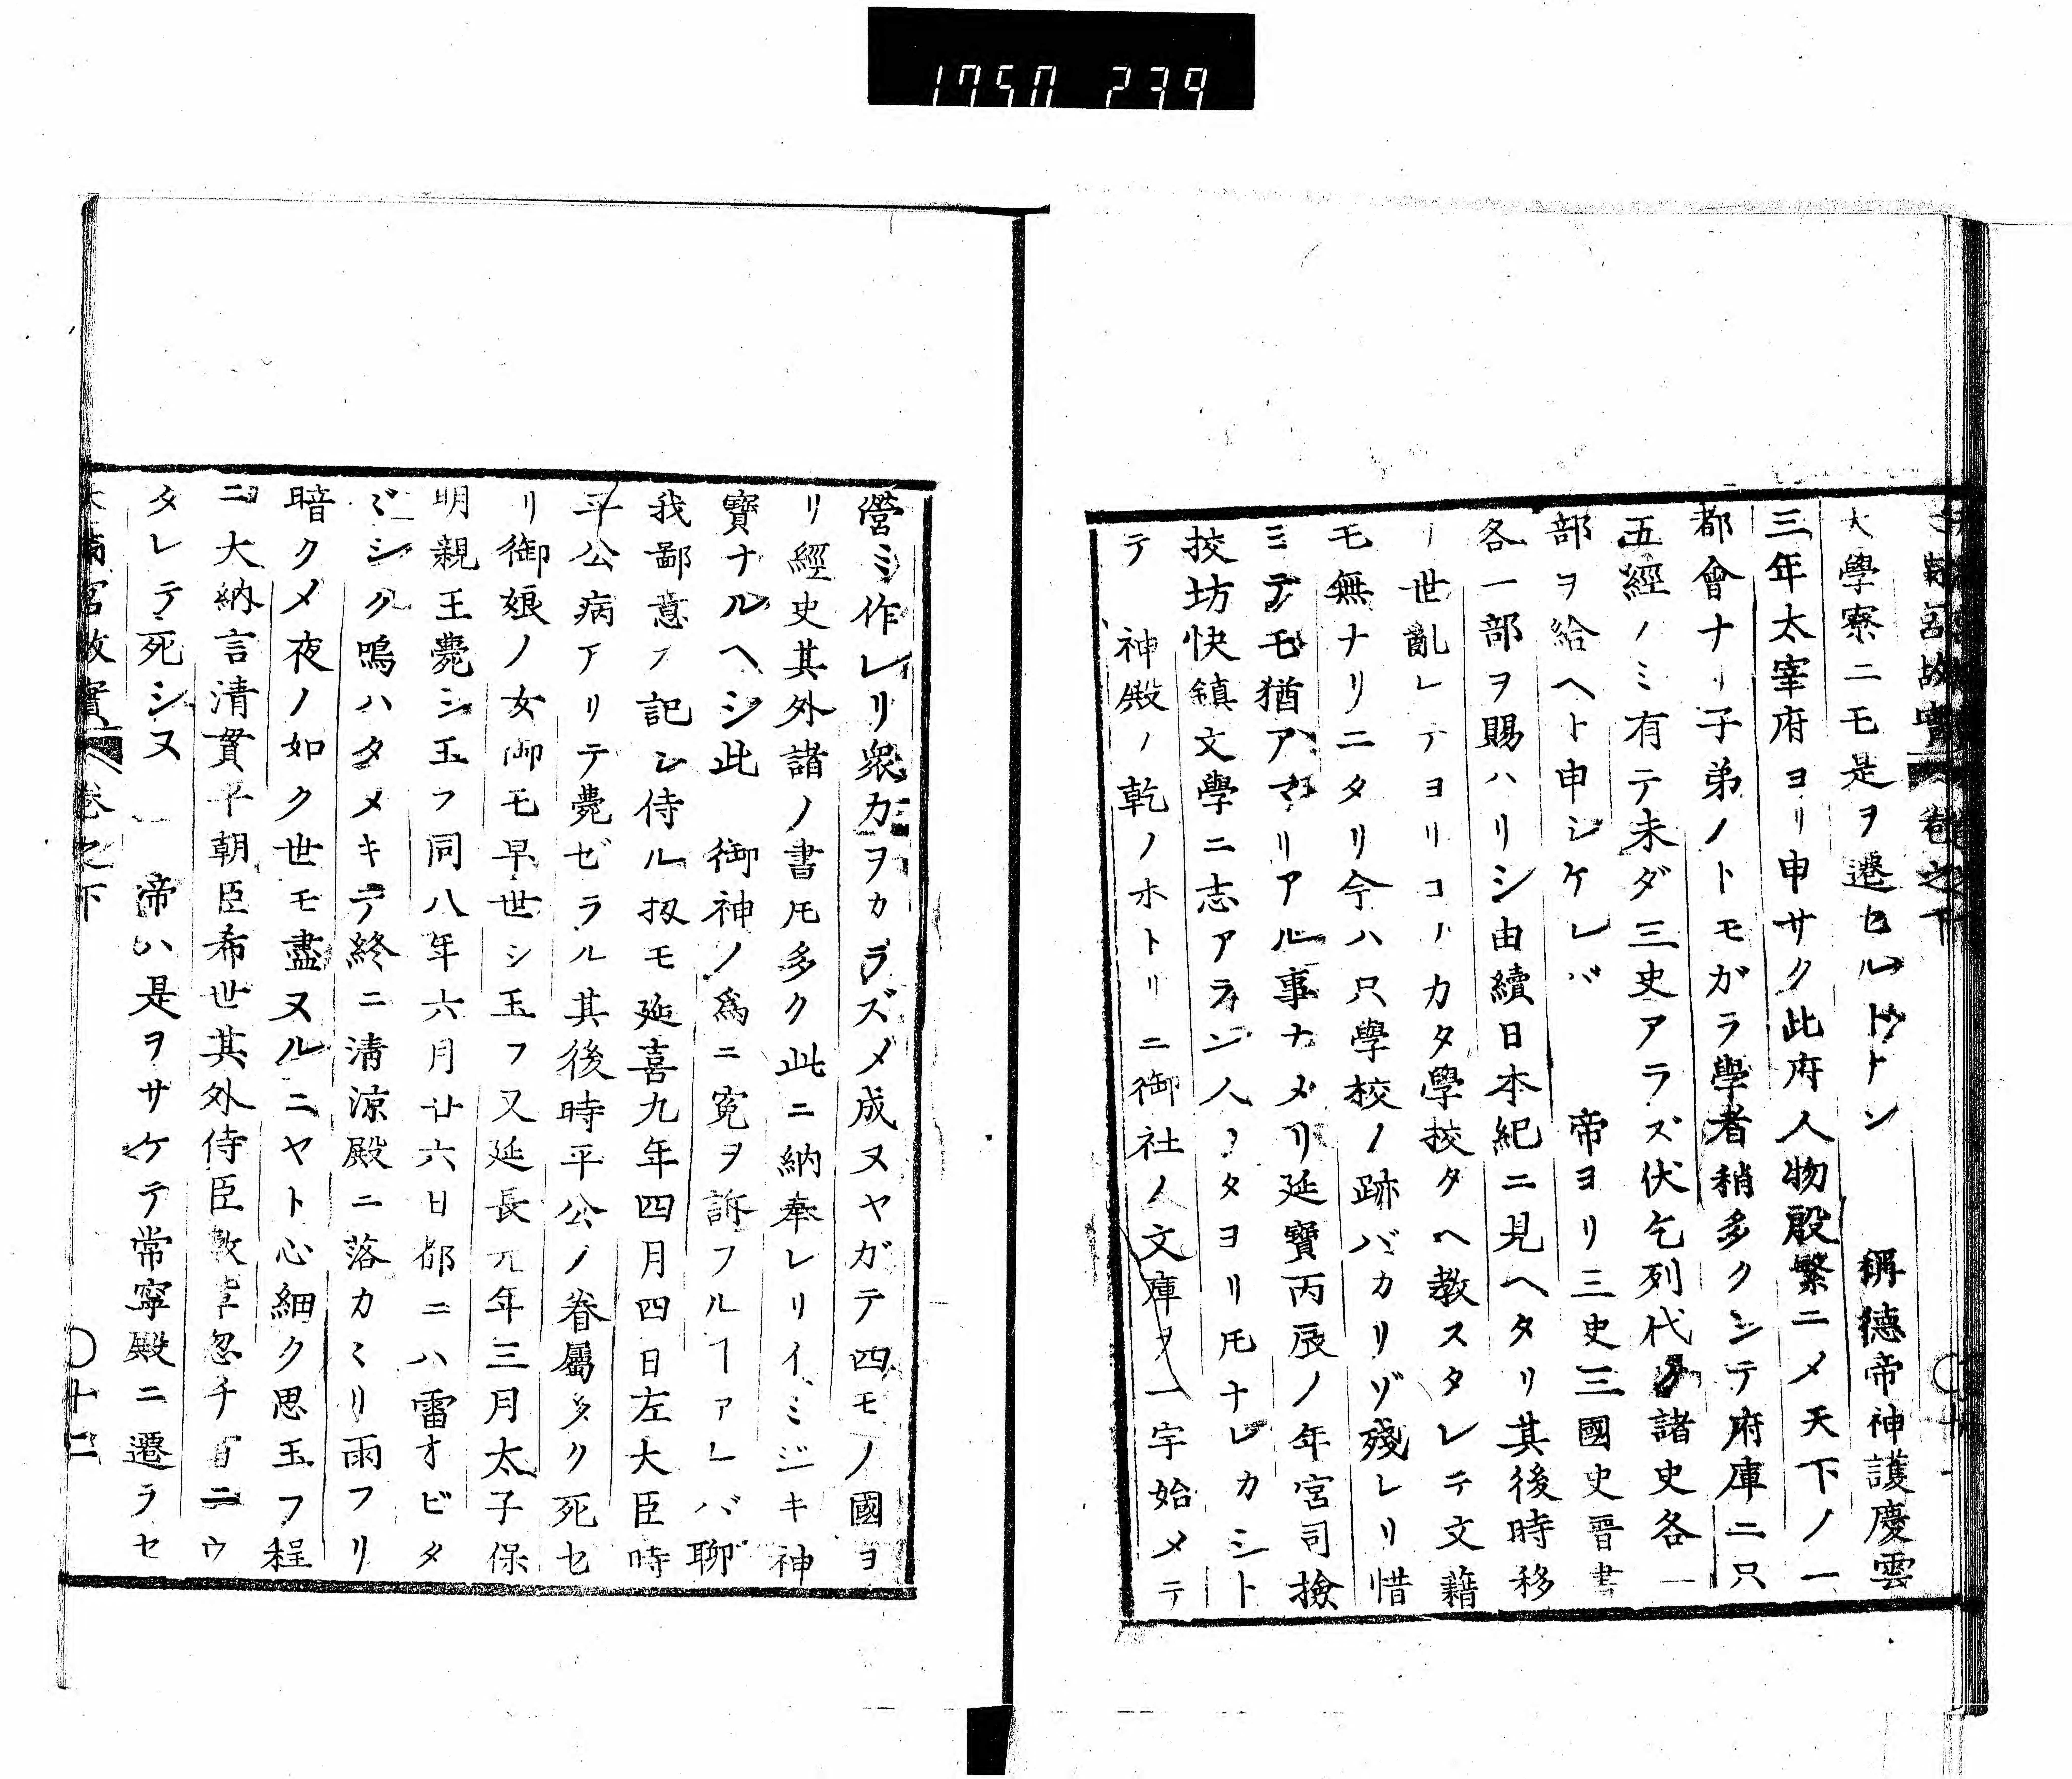 1750 239
大學寮ニモ是ヲ遷セルトゾトン　稱德帝神護慶雲
三年太宰府ヨリ申サク此府人物殷繁ニメ天下ノ一
都會ナリ子弟ノトモガラ學者稍多クシテ府庫ニ只
五經ノミ有テ未ダ三史アラズ伏乞列代ノ諸史各一
部ヲ給ヘト申シケレバ　帝ヨリ三史三國史晋書
各一部ヲ賜ハリシ由續日本紀ニ見ヘタリ其後時移
リ世亂レテヨリコノカタ學校タヘ教スタレテ文籍
モ無ナリニタリ今ハ只學校ノ跡バカリゾ殘レリ惜
ミテモ猶アマリアル事ナメリ延寶丙辰ノ年宮司撿
挍坊快鎮文學ニ志アラン人ノタヨリ𪜈ナレカシト
テ　神殿ノ乾ノホトリニ御社ノ文庫ヲ一宇始メテ
營ミ作レリ衆力ヲカラズメ成ヌヤガテ四モノ國ヨ
リ經史其外諸ノ書𪜈多ク此ニ納奉レリイミジキ神
寶ナルヘシ此　御神ノ爲ニ寃ヲ訴フルヿアレバ聊
我鄙意ヲ記シ侍ル扨モ延喜九年四月四日左大臣時
平公病アリテ薨ゼラル其後時平公ノ眷屬多ク死セ
リ御娘ノ女御モ早世シ玉フ又延長元年三月太子保
明親王薨シ玉フ同八年六月廿六日都ニハ雷オビタ
ヾシク鳴ハタメキテ終ニ清涼殿ニ落カヽリ雨フリ
暗クメ夜ノ如ク世モ盡ヌルニヤト心細ク思玉フ程
ニ大納言清貫平朝臣希世其外侍臣數輩忽チ首ニウ
タレテ死シヌ　帝ハ是ヲサケテ常寧殿ニ遷ラセ
宮故實　卷之下　〇十二